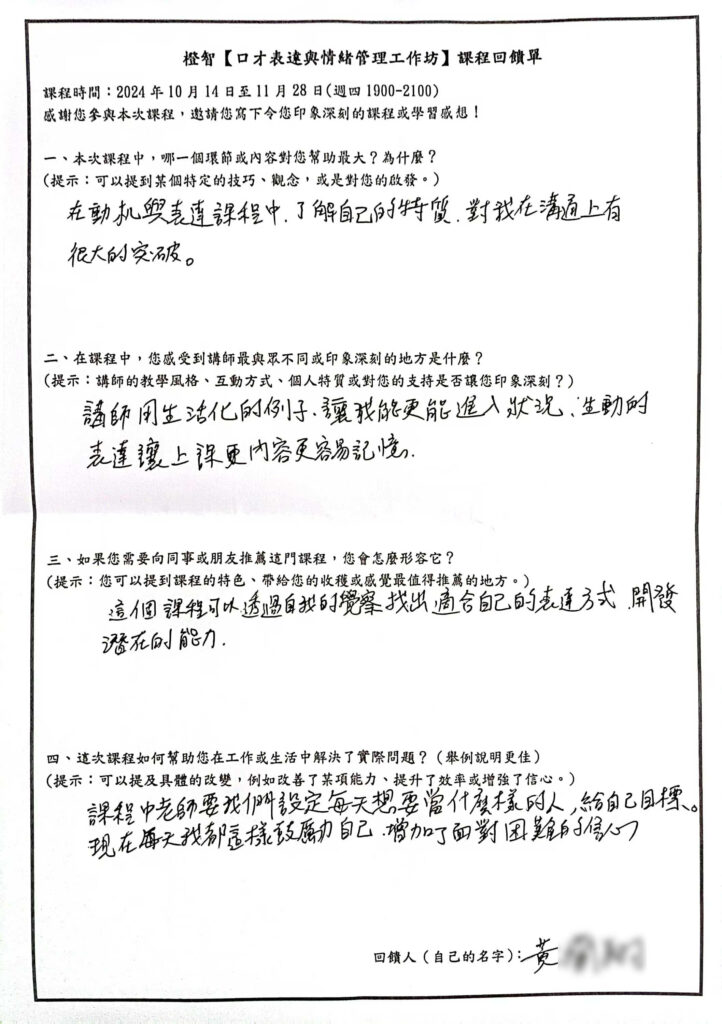 橙智【口才表達與情緒管理工作坊】課程回饋單
課程時間：2024 年 10 月 14 日至 11 月 28 日(週四 1900-2100)
感謝您參與本次課程，邀請您寫下令您印象深刻的課程或學習感想！
一、本次課程中，哪一個環節或內容對您幫助最大？為什麼？
(提示：可以提到某個特定的技巧、觀念，或是對您的啟發。)
在動机與表達課程中、了解自己的特質、對我在溝通上有
很大的突破。
二、在課程中，您感受到講師最與眾不同或印象深刻的地方是什麼？
(提示：講師的教學風格、互動方式、個人特質或對您的支持是否讓您印象深刻？)
講師用生活化的例子、讓我能更能進入狀況、生動的
表達讓上課更內容更容易記憶.
三、如果您需要向同事或朋友推薦這門課程，您會怎麼形容它？
(提示：您可以提到課程的特色、帶給您的收穫或感覺最值得推薦的地方。)
這個課程可以透過自我的覺察找出適合自己的表達方式、開發
潛在的能力.
四、這次課程如何幫助您在工作或生活中解決了實際問題？(舉例說明更佳)
(提示：可以提及具體的改變，例如改善了某項能力、提升了效率或增強了信心。)
課程中老師要我們設定每天想要當什麼樣的人，給自己目標。
現在每天我都這樣鼓勵自己、增加了面對困難的信心
回饋人(自己的名字)：黃